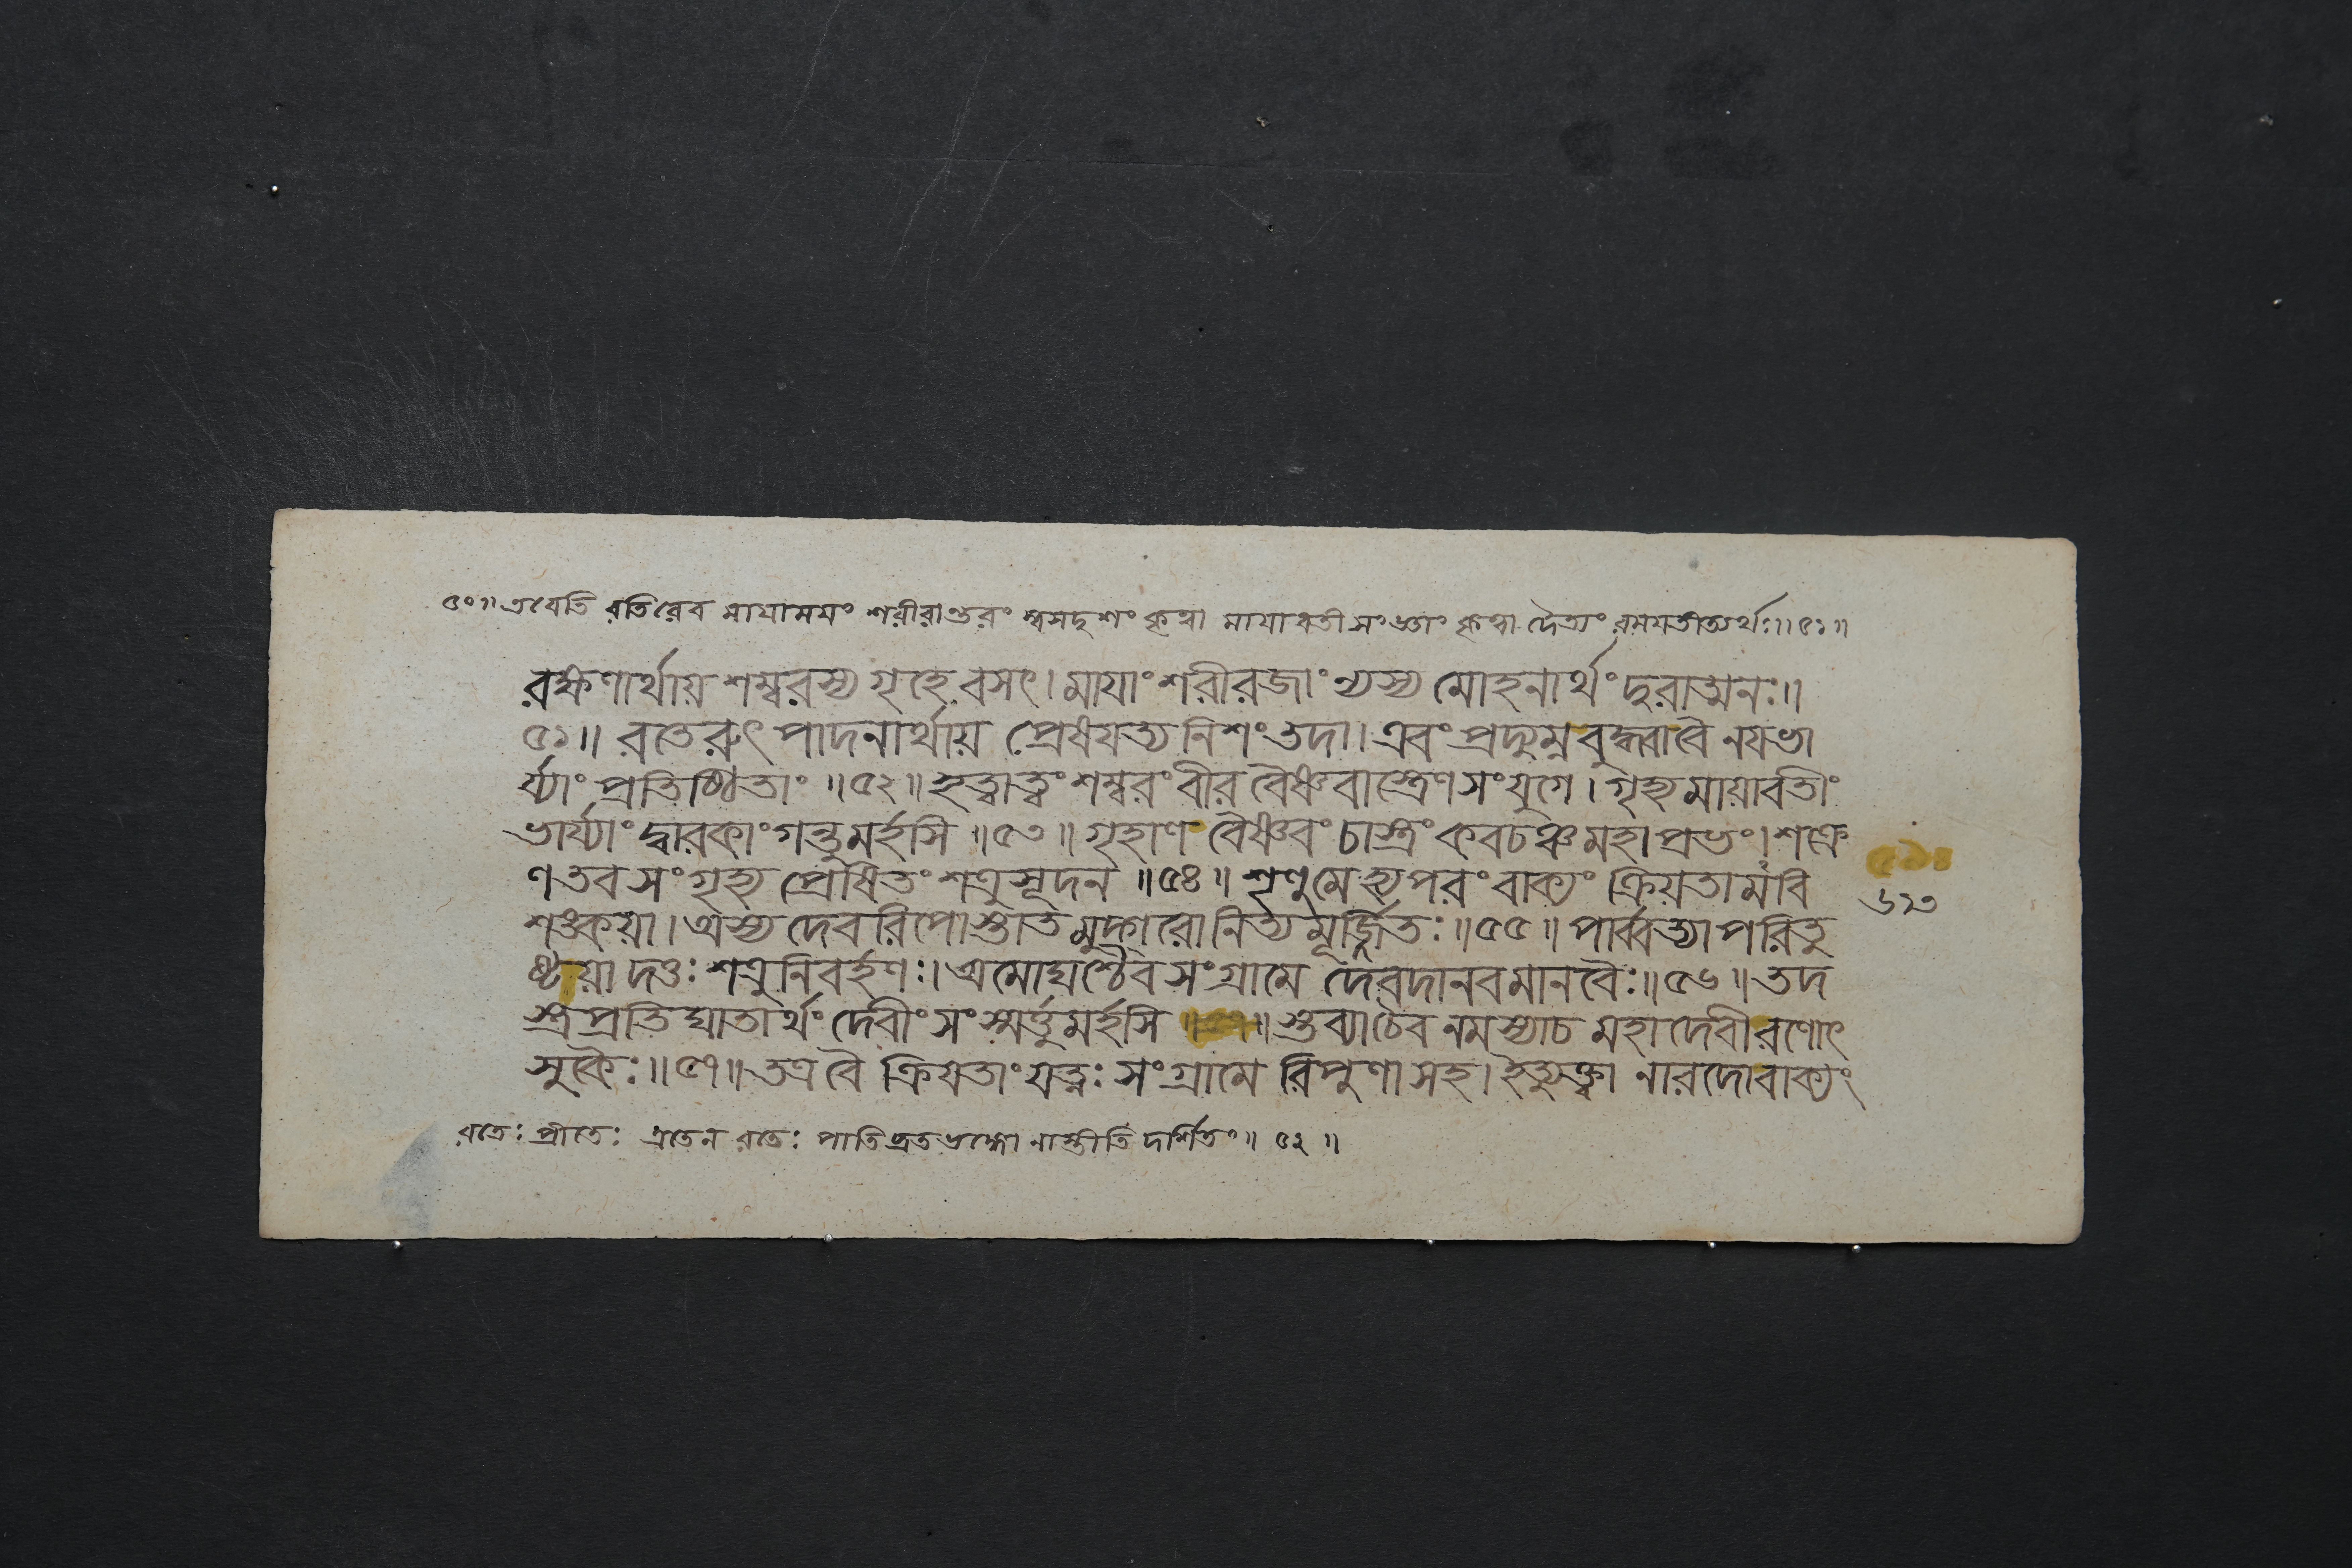 ৫০॥ এবেতি রতিরেব মায়াময়ং শরীরান্তরং স্বসদৃশং কৃত্বা মায়াবতীসংজ্ঞাং কৃত্বা দৈত্যং রময়তীত্যর্থঃ॥৫১॥
রক্ষণার্থায় শম্বরস্য গৃহে বসৎ। মাযাং শরীরজাং ন্যস্য মোহনার্থং দুরাত্মনঃ॥
৫১॥ রতেরুৎপাদনার্থায় প্রেষযত্যনিশং তদা। এবং প্রদ্যুম্ন বুদ্ধ্বাবৈ নযভা
র্য্যাং প্রতিষ্ঠিতাং ॥৫২॥ হত্বাত্বং শম্বরং বীর বৈষ্ণবাস্ত্রেণ সংযুগে। গৃহ্য মায়াবতীং
ভার্য্যাং দ্বারকাং গন্তুমর্হসি ॥৫৩॥ গৃহাণ বৈষ্ণবং চাস্ত্রং কবচঞ্চ মহাপ্রভং। শক্রে
ণ তব সংগৃহ্য প্রেষিতং শত্রুসূদন ॥৫৪॥ শৃণুমে হ্যপরং বাক্যং ক্রিয়তামবি
৬২৩
শঙ্কয়া। অস্য দেবরিপোস্তাত মুদ্গরোনিত্যমূর্জ্জিতঃ॥৫৫॥ পার্ব্বত্যা পরিতু
ষ্টয়া দত্তঃ শত্রুনিবর্হণঃ। অমোঘশ্চৈব সংগ্রামে দেবদানবমানবৈঃ॥৫৬॥ তদ
স্ত্রপ্রতিঘাতার্থং দেবীং সংস্মর্ত্তুমর্হসি ॥ স্তব্যাচৈব নমস্যাচ মহাদেবী রণোৎ
সুকৈঃ॥৫৭॥ তত্রবৈ ক্রিযতাং যত্নঃ সংগ্রামে রিপুণাসহ। ইত্যুক্ত্বা নারদোবাক্যং
রতেঃ প্রীতেঃ এতেন রতেঃ পাতিব্রতভঙ্গো নাস্তীতি দর্শিতং॥ ৫২ ॥